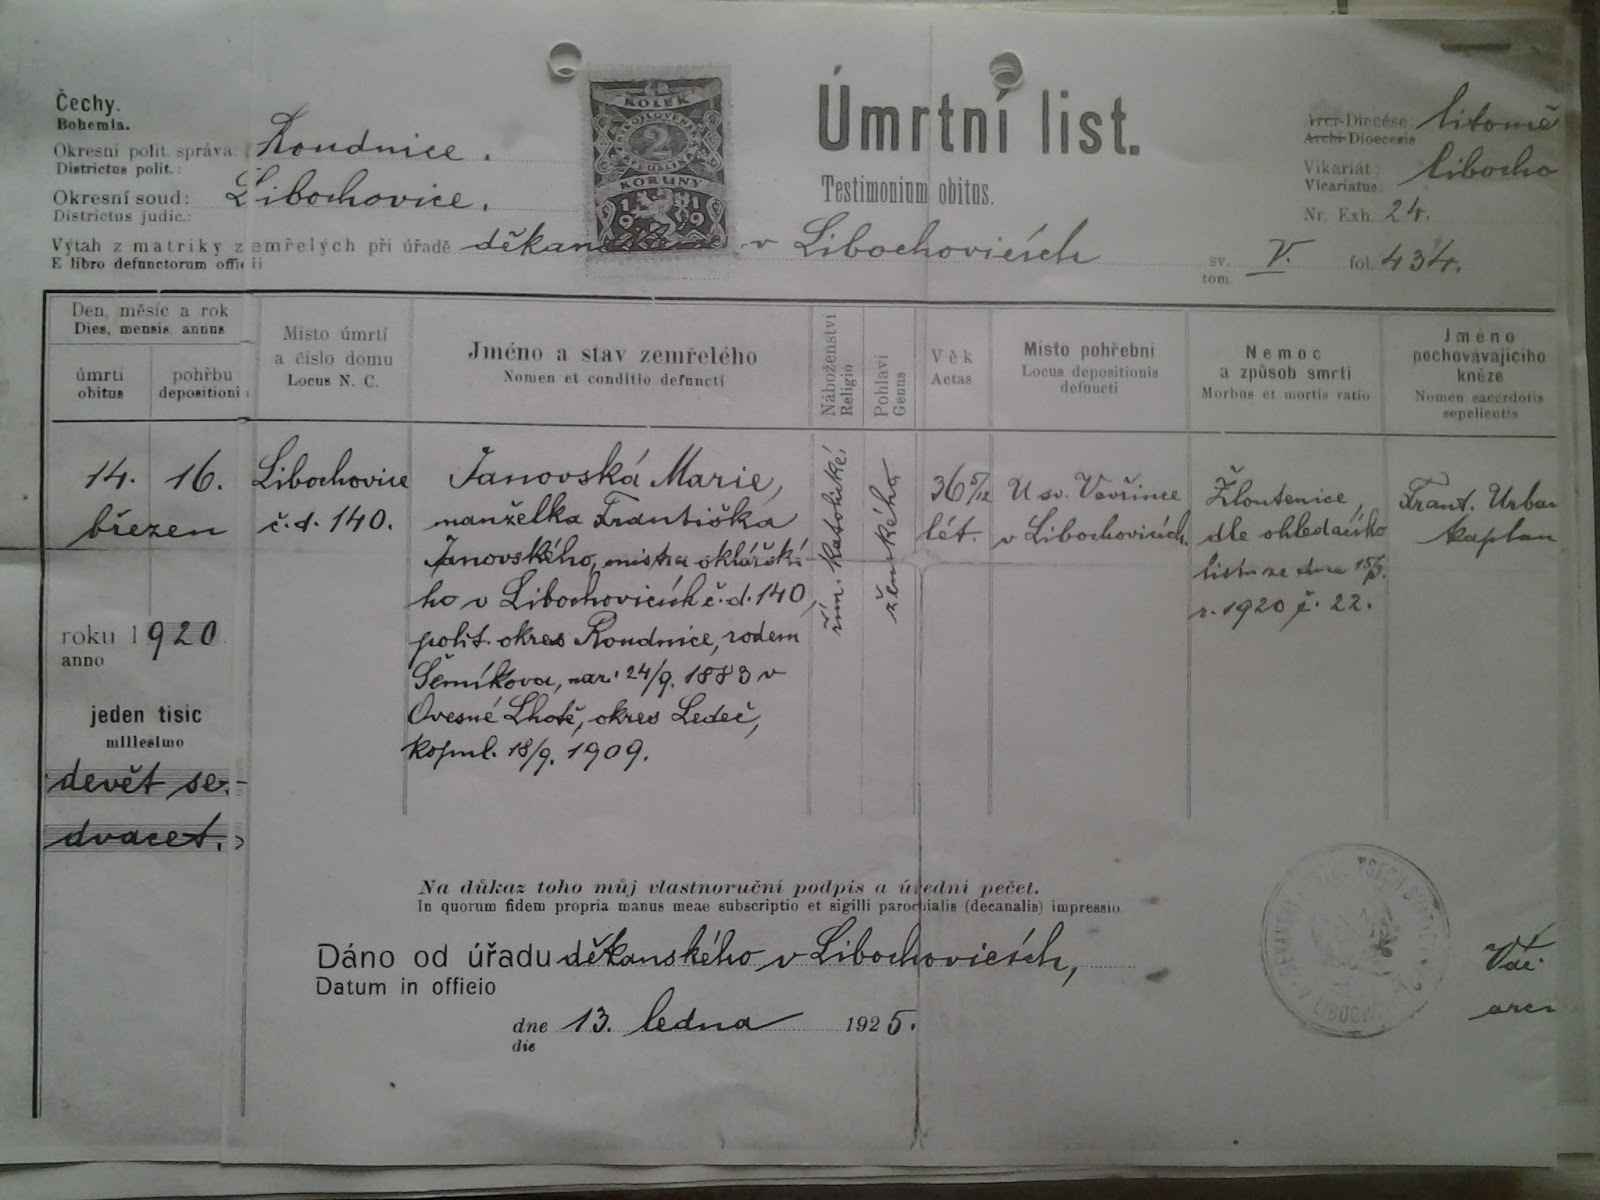 Čechy.
Bohemia.
Okresní polit. správa: Roudnice.
Districtus polit.:
Okresní soud: Libochovice.
Districtus judic.:
KOLEK
2
KORUNY
1919
Úmrtní list.
Testimonium obitus.
Arci-Diecése: Litomě
Archi-Dioecesis
Vikariát: Libocho
Vicariatus:
Nr. Exh. 24.
Výtah z matriky zemřelých při úřadě v Libochovicích sv. V. fol. 434.
E libro defunctorum officii tom.
Den, měsíc a rok
Dies, mensis annus
úmrtí
obitus
pohřbu
depositioni
Místo úmrtí
a číslo domu
Locus N. C.
Jméno a stav zemřelého
Nomen et conditio defuncti
Náboženství
Religio
Pohlaví
Genus
Věk
Aetas
Místo pohřební
Locus depositionis
defuncti
Nemoc
a způsob smrti
Morbus et mortis ratio
Jméno
pochovávajícího
kněze
Nomen sacerdotis
sepelientis
14. 16.
březen
roku 1920
anno
jeden tisíc
millesimo
devět se-
dvacet.
Libochovice
č.d. 140.
Janovská Marie,
manželka Františka
Janovského, mistra oklářské-
ho v Libochovicích č.d. 140,
polit. okres Roudnice, rodem
Semíkova, nar. 24/9. 1883 v
Ovesné Lhotě, okres Ledeč,
kopul. 18/9. 1909.
řím. katolické
ženského
36 5/12
lét.
U sv. Vavřince
v Libochovicích.
Žloutenice,
dle ohledacího
listu ze dne 15/3.
r. 1920 č. 22.
Frant. Urban
kaplan
Na důkaz toho můj vlastnoruční podpis a úřední pečet.
In quorum fidem propria manus meae subscriptio et sigilli parochialis (decanalis) impressio
Dáno od úřadu děkanského v Libochovicích,
Datum in officio
dne 13. ledna 1925.
die